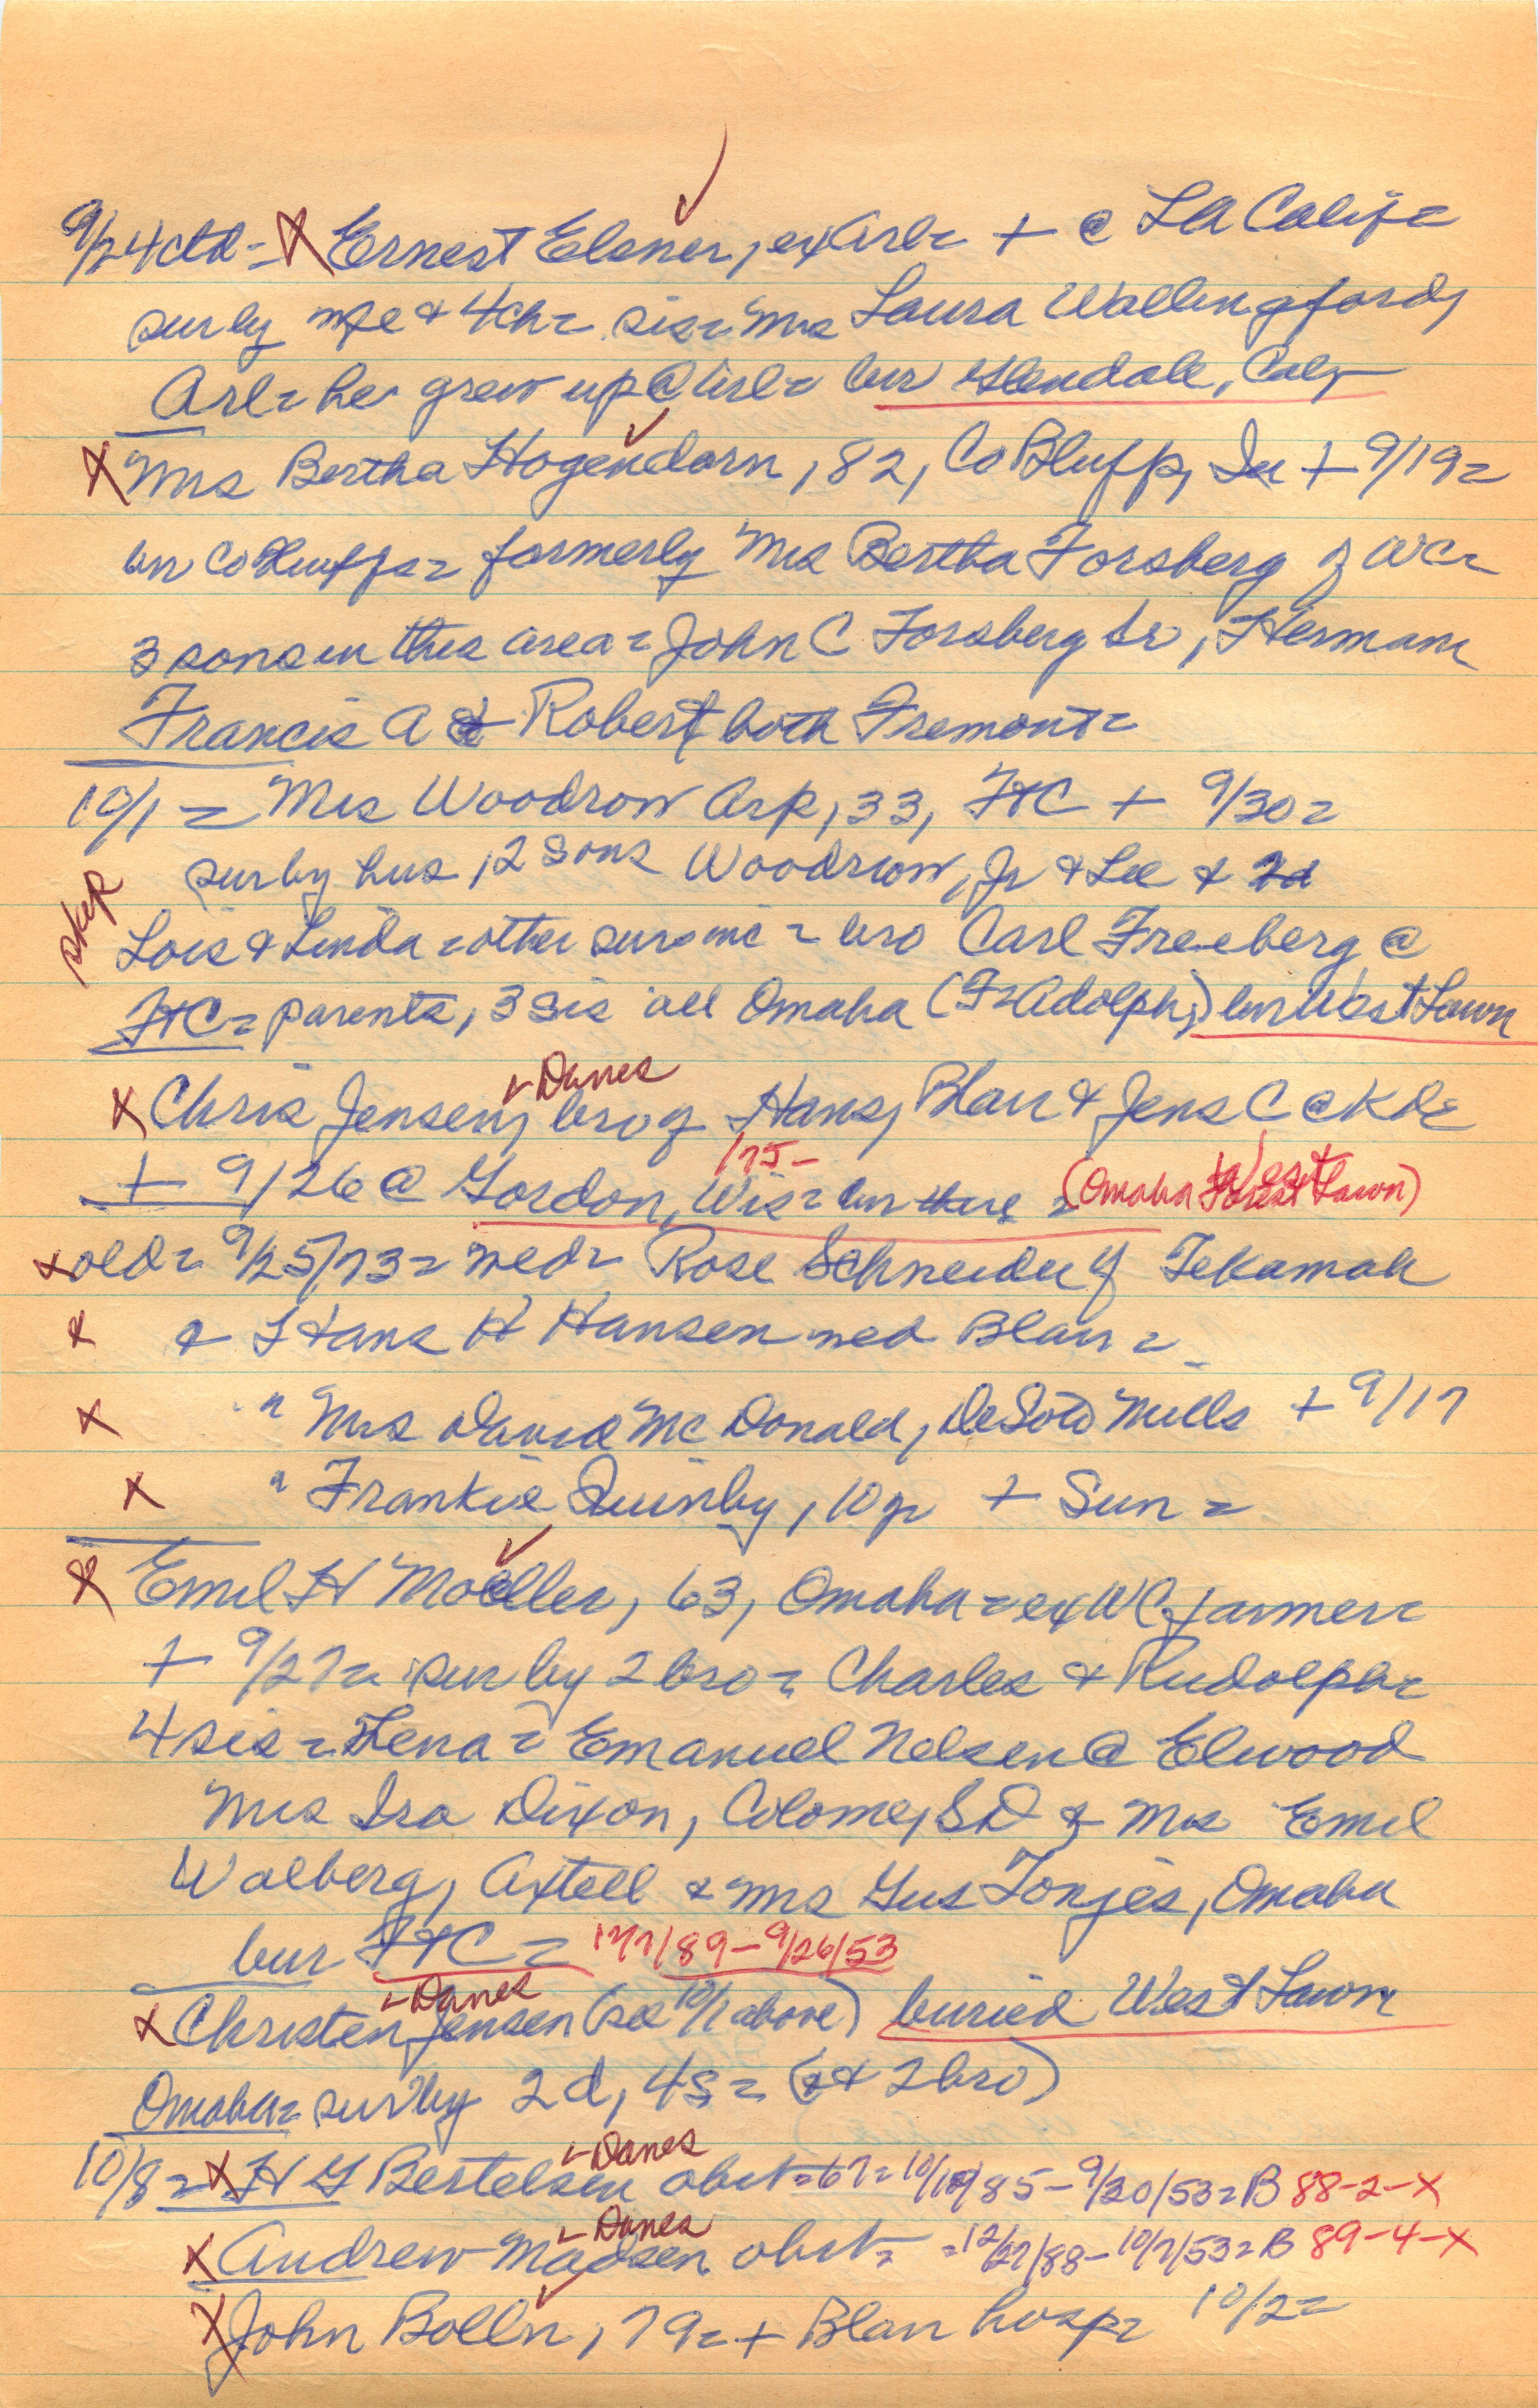 9/24 ctd = X Ernest Elsner, ex Arl = + @ LA Calif =
sur by wfe & 4 ch = sis = Mrs Laura Wallingford,
Arl = he grew up @ Arl = bur Glendale, Calif
X Mrs Bertha Hogendorn, 82, Co Bluffs, Ia + 9/19 =
bur Co Bluffs = formerly Mrs Bertha Forsberg of WC =
3 sons in this area = John C Forsberg Sr, Herman
Francis A & Robert both Fremont =
10/1 = Mrs Woodrow Arp, 33, FtC + 9/30 =
sur by hus, 2 sons Woodrow, Jr & Lee & 2d
skip
Lois & Linda = other surs inc = bro Carl Freeberg @
FtC = parents, 3 sis all Omaha (F = Adolph,) bur West Lawn
- Danes
X Chris Jensen, bro of Hans, Blair & Jens C @ K De
175 -
+ 9/26 @ Gordon, Wis = bur there = (Omaha West Lawn)
X old = 9/25/73 = wed = Rose Schneider of Tekamah
X & Hans H Hansen wed Blair =
X " Mrs David McDonald, DeSoto Mills + 9/17
X " Frankie Quinby, 10 yr + Sun =
X Emil H Moeller, 63, Omaha = ex WC farmer =
+ 9/27 = sur by 2 bro = Charles & Rudolph =
4 sis = Lena = Emanuel Nelsen @ Elwood
Mrs Ira Dixon, Colome, SD & Mrs Emil
Walberg, Axtell & Mrs Gus Tonjes, Omaha
bur FtC = 89 - 9/26/53
- Danes
X Christen Jensen (see 10/1 above) buried West Lawn
Omaha = sur by 2 d, 4 s = (& 2 bro)
- Danes
10/8 = X H G Bertelsen obit = 67 = 85 - 9/20/53 = B 88-2-X
- Danes
X Andrew Madsen obit = = 12/27/88 - 10/7/53 = B 89-4-X
X John Bolln, 79 = + Blair hosp = 10/2 =